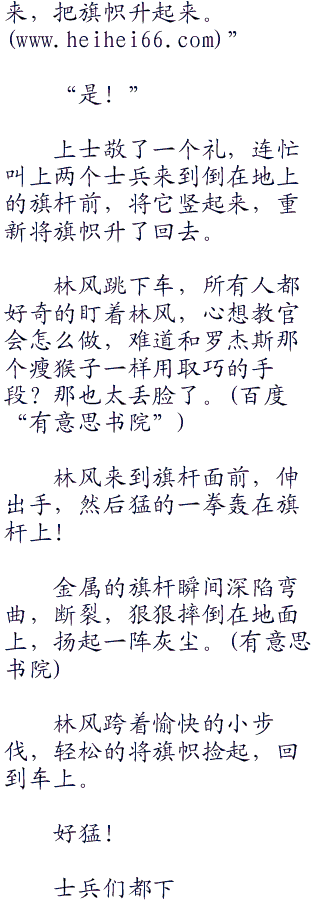 来，把旗帜升起来。
(www.heihei66.com)”
“是！”
上士敬了一个礼，连忙
叫上两个士兵来到倒在地上
的旗杆前，将它竖起来，重
新将旗帜升了回去。
林风跳下车，所有人都
好奇的盯着林风，心想教官
会怎么做，难道和罗杰斯那
个瘦猴子一样用取巧的手
段？那也太丢脸了。(百度
“有意思书院”)
林风来到旗杆面前，伸
出手，然后猛的一拳轰在旗
杆上！
金属的旗杆瞬间深陷弯
曲，断裂，狠狠摔倒在地面
上，扬起一阵灰尘。(有意思
书院)
林风跨着愉快的小步
伐，轻松的将旗帜捡起，回
到车上。
好猛！
士兵们都下